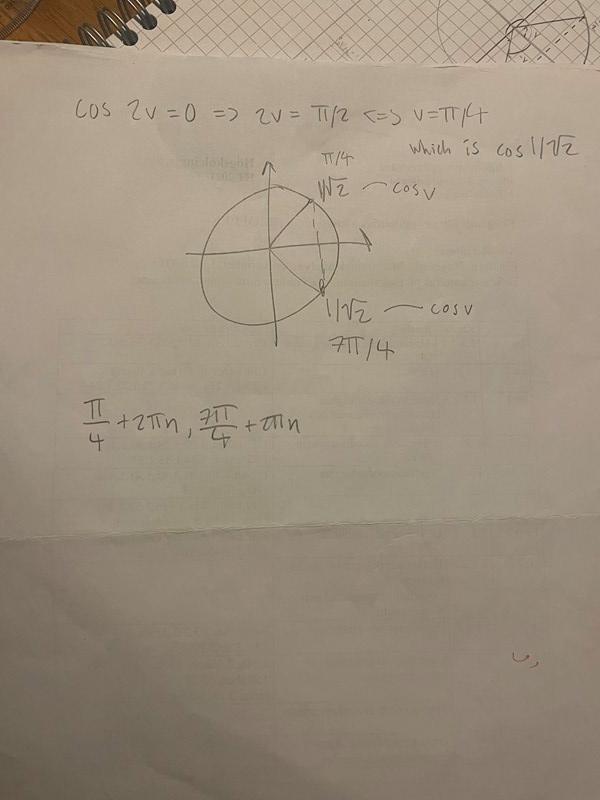 cos 2v = 0 => 2v = π/2 <=> v = π/4
which is cos 1/√2
π/4
1/√2 — cos v
1/√2 — cos v
7π/4
π/4 + 2πn, 7π/4 + 2πn